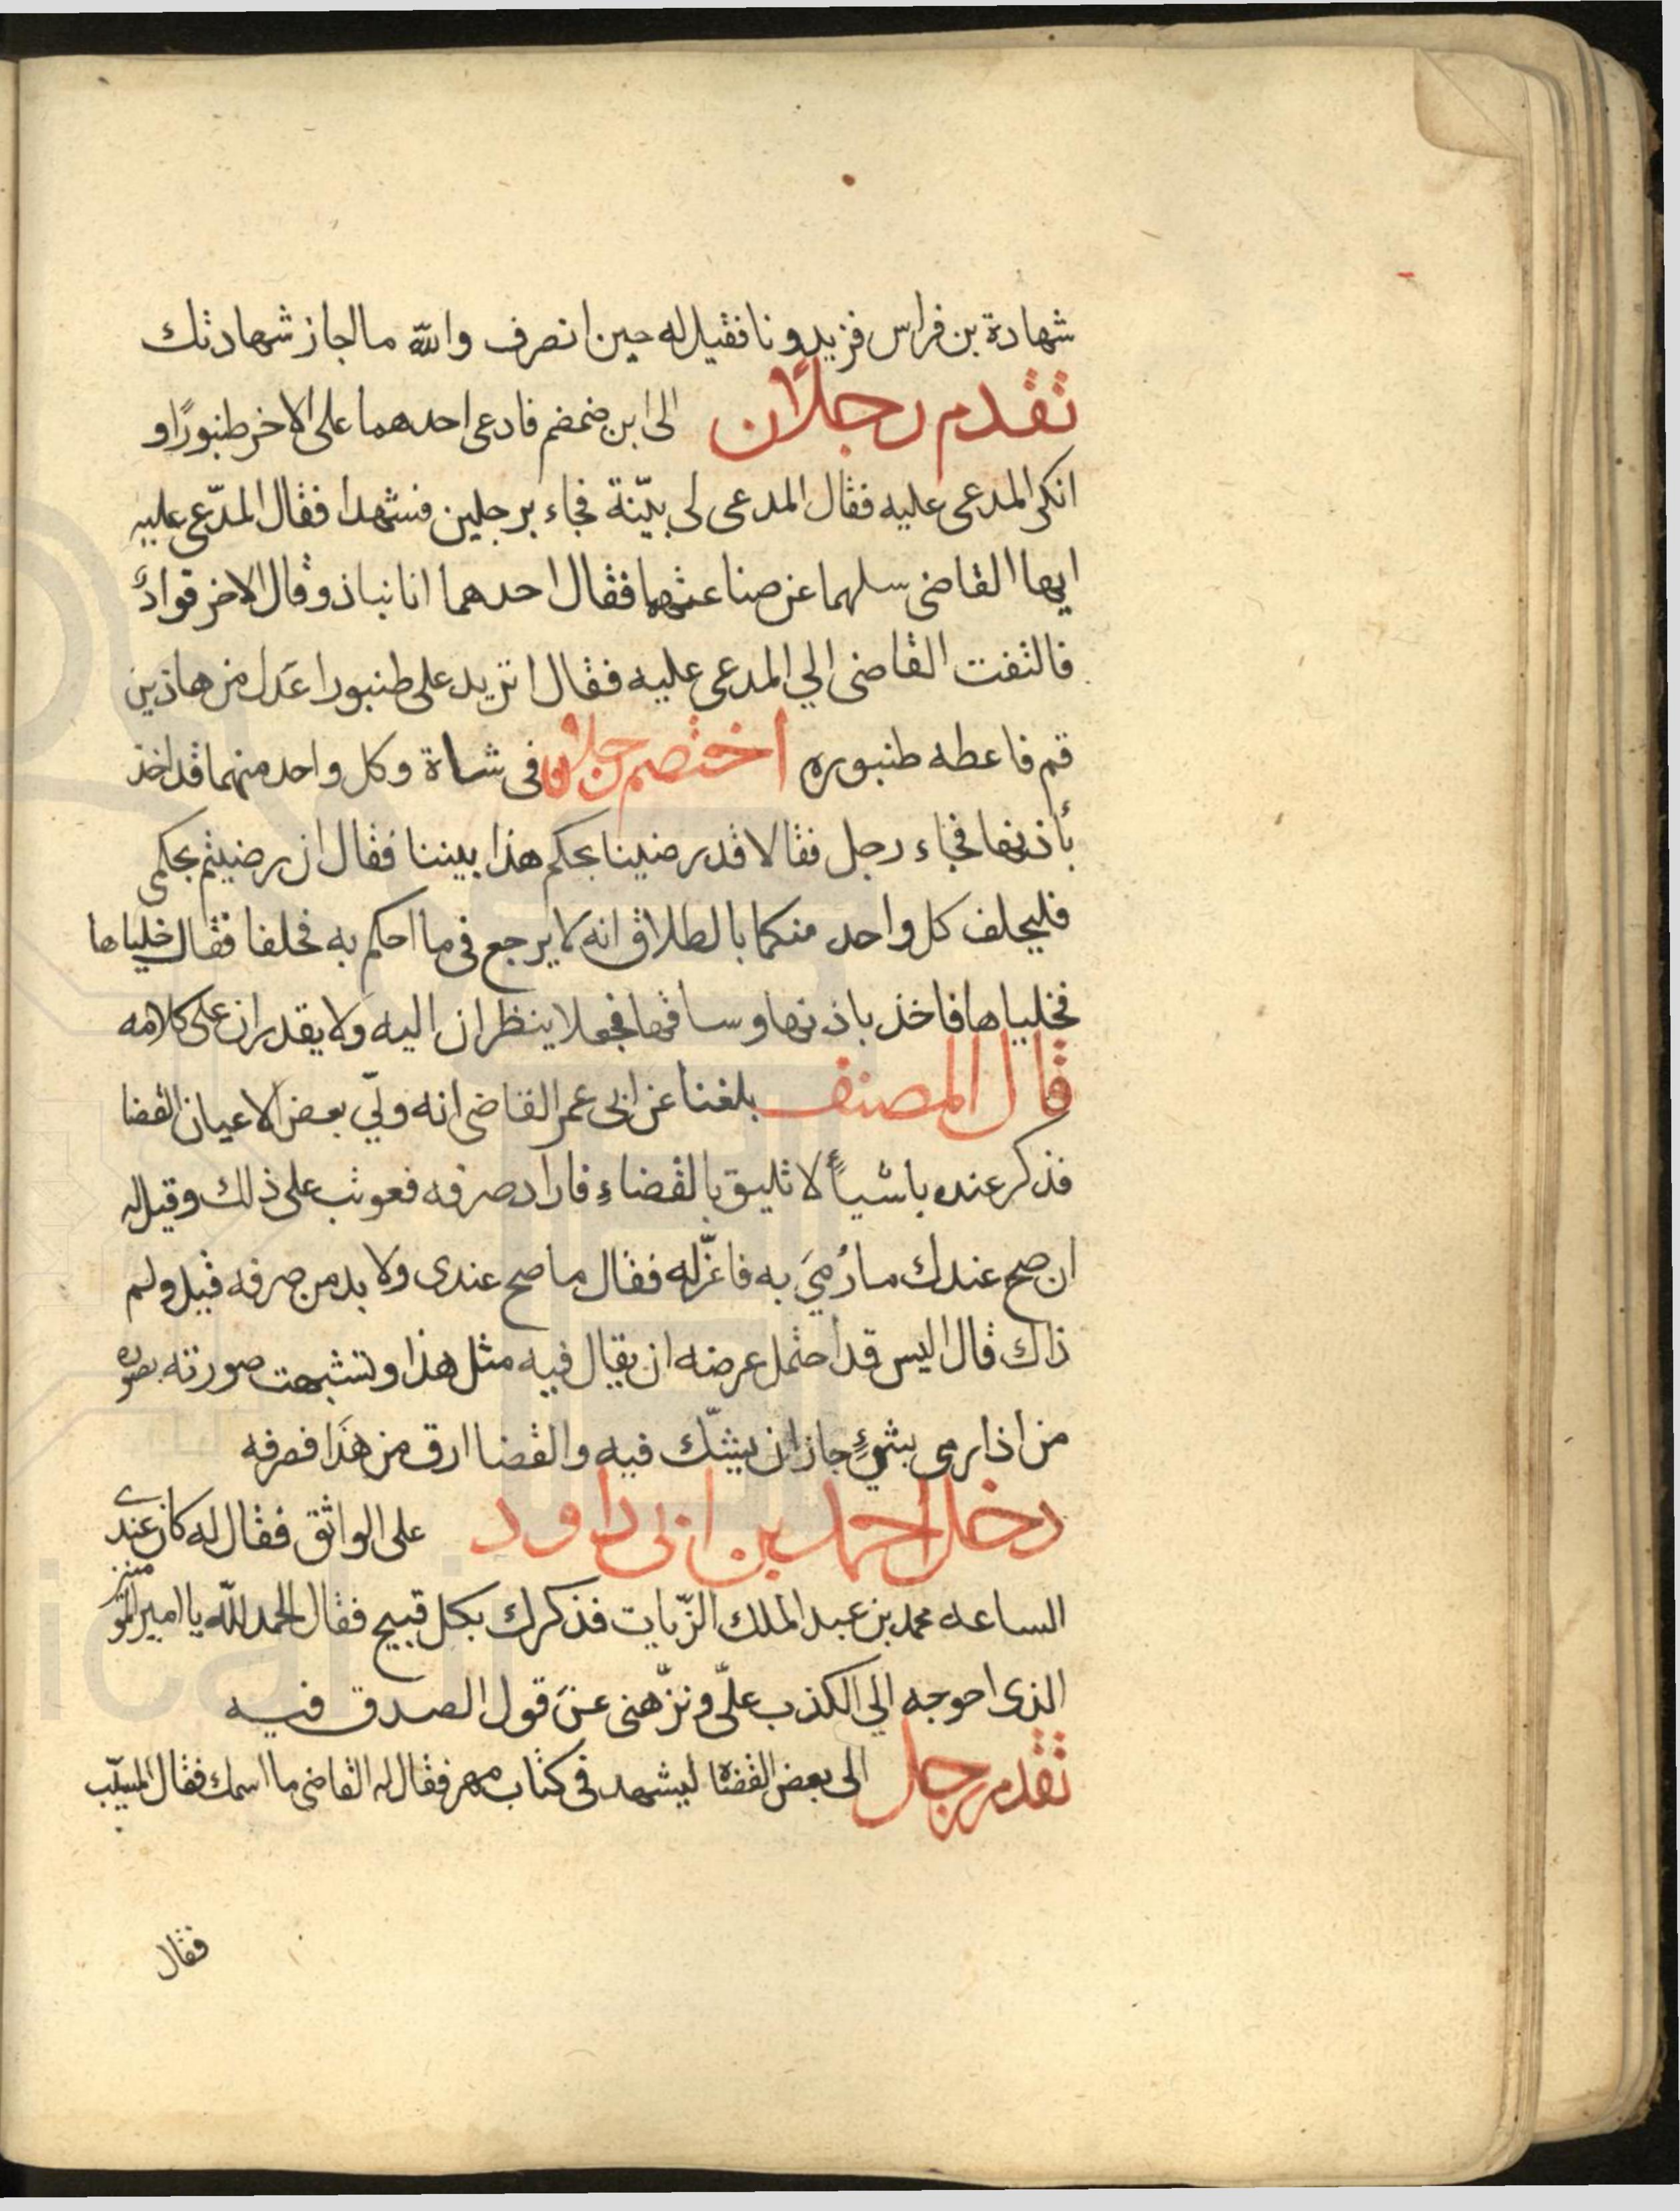 شهادة بن فراس فزيدونا فقيل له حين انصرف والله ما اجاز شهادتك
تقدم رجلان الى ابن ضمضم فادعى احدهما على الاخر طنبورًا و
انكر المدعى عليه فقال المدعى لى بيّنة فجاء برجلين فشهدا فقال المدّعى عليه
ايها القاضى سلهما عن صناعتهما فقال احدهما انا نباذ وقال الاخر قوادٌ
فالتفت القاضى الي المدعى عليه فقال اتريد على طنبور اعَدل من هاذين
قم فاعطه طنبوره اختصم رجلان فى شاة وكل واحد منهما قد اخذ
بأذنها فجاء رجل فقالا قد رضينا بحكم هذا بيننا فقال ان رضيتم بحكمى
فليحلف كل واحد منكما بالطلاق انه لا يرجع فى ما احكم به فحلفا فقال خلياها
فخلياها فاخذ باذنها وساقها فجعلا ينظران اليه ولا يقدران على كلامه
قال المصنف بلغنا عن ابى عمر القاضى انه ولّي بعض الاعيان القضا
فذكر عنده باشياءً لا تليق بالقضاءِ فاراد صرفه فعوتب على ذلك وقيل له
ان صح عندك ما رُميَ به فاعزله فقال ما صح عندى ولا بد من صرفه قيل ولم
ذاك قال اليس قد احتمل عرضه ان يقال فيه مثل هذا وتشبهت صورته بصوره
من اذا رمى بشيءٍ جاز ان يشكّ فيه والقضا ارق من هَذَا فصرفه
دخل احمد بن ابى داود على الواثق فقال له كان عندى
الساعه محمد بن عبد الملك الزّيات فذكرك بكل قبيح فقال الحمد لله يا امير المؤمنين
الذى احوجه الي الكذب علىّ ونزّهنى عن قول الصدق فيه
تقدم رجل الى بعض القضاة ليشهد فى كتاب مهر فقال له القاضى ما اسمك فقال المسيّب
فقال